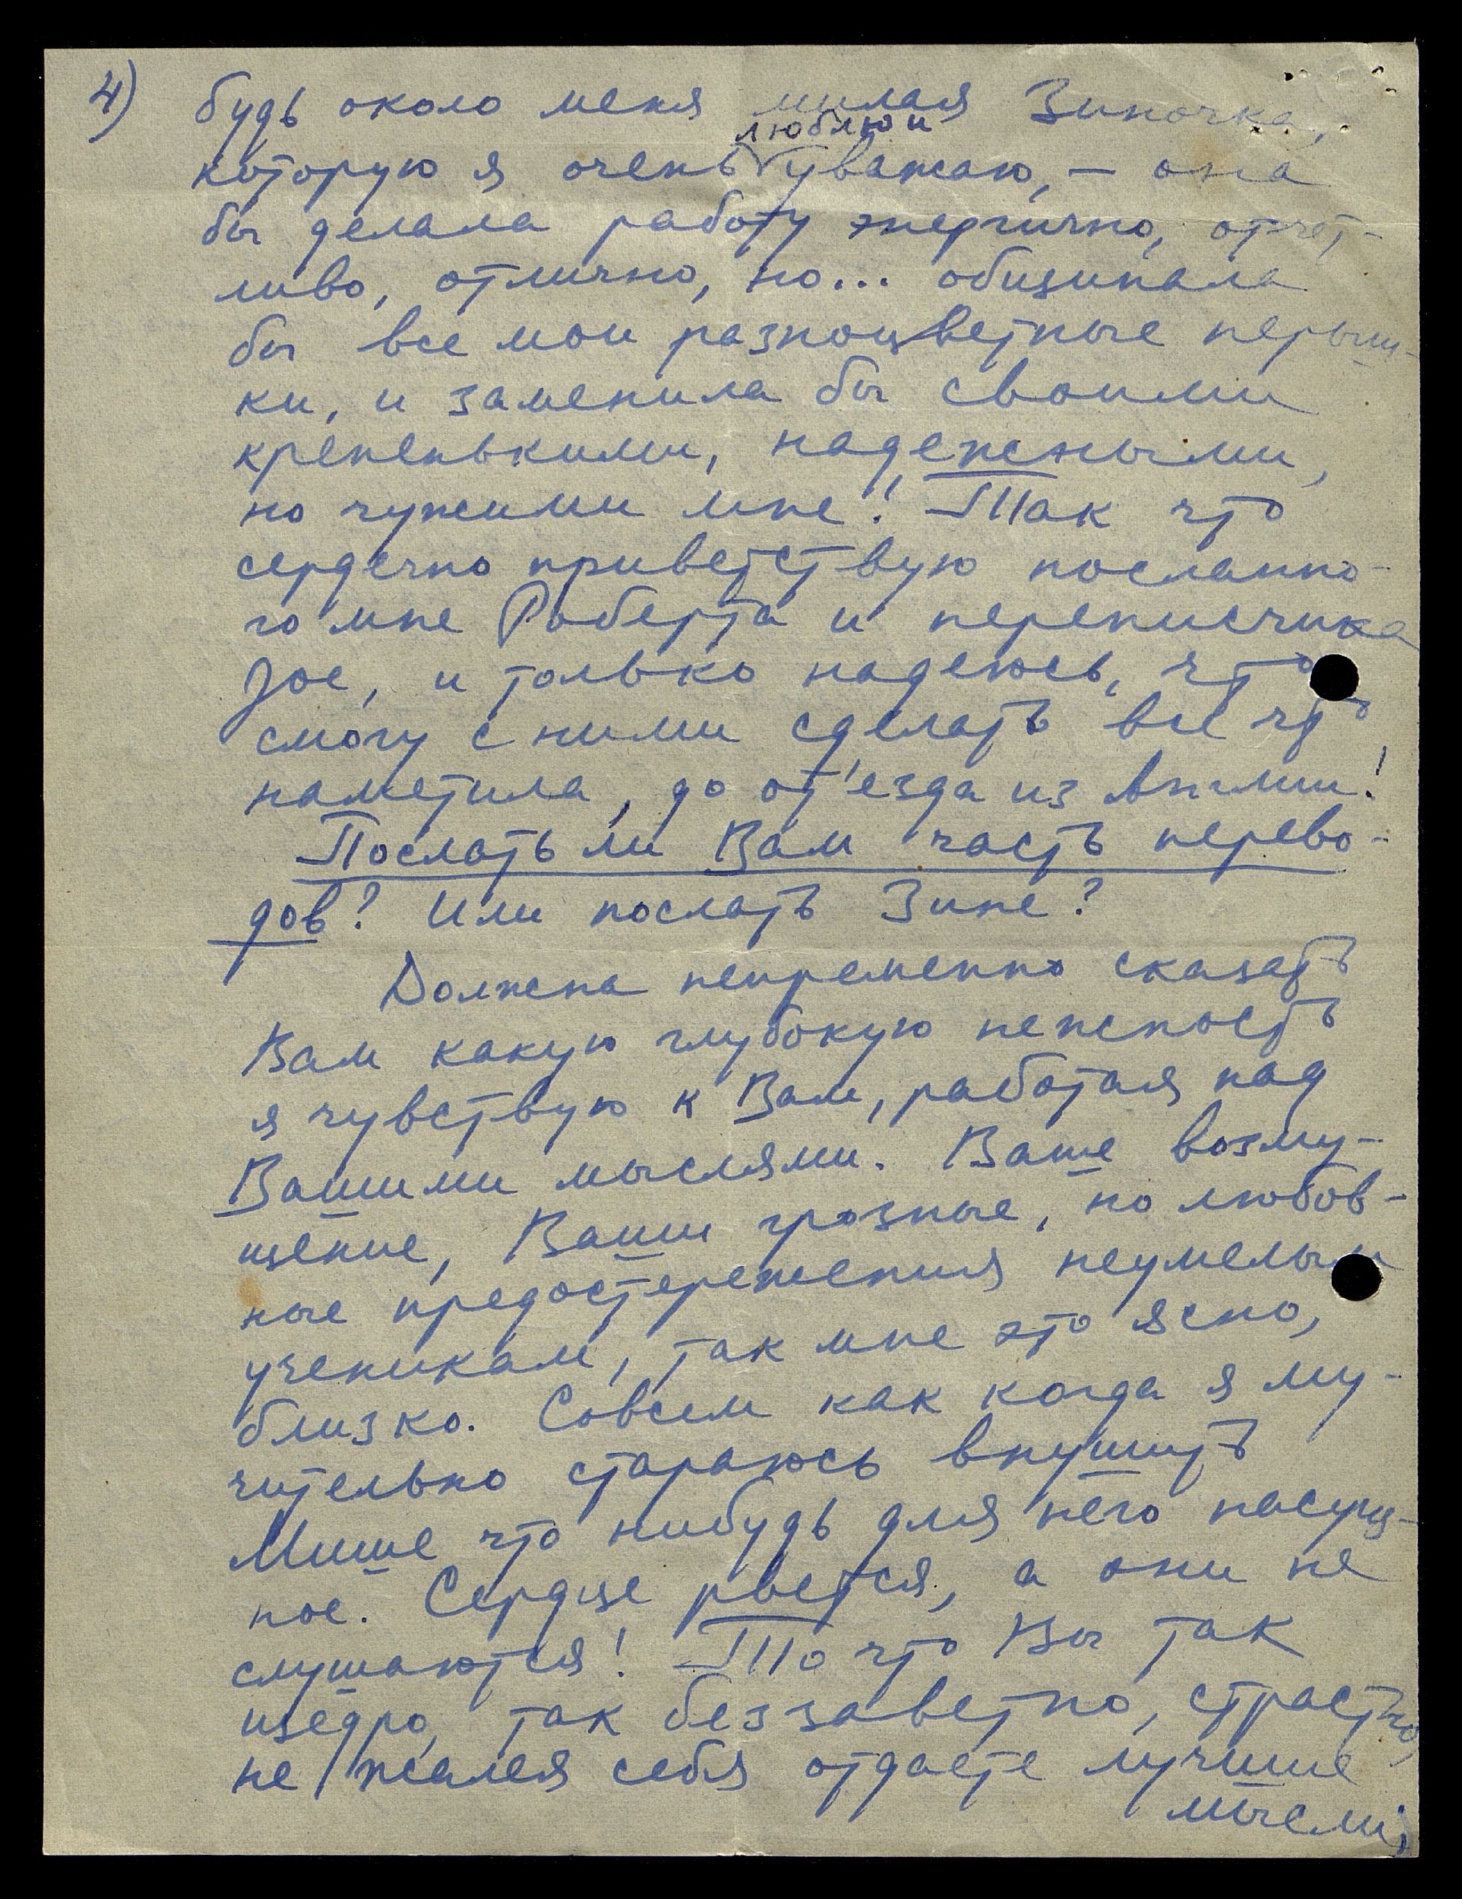 4) будь около меня милая Зиночка,
люблю и
которую я очень уважаю, — она
бы делала работу энергично, отчет-
ливо, отлично, но... общипала
бы все мои разноцветные перыш-
ки, и заменила бы своими
крепенькими, надежными,
но чужими мне! Так что
сердечно приветствую посланно-
го мне Роберта и переписчика
Joe, и только надеюсь, что
смогу с ними сделать все что
наметила, до от'езда из Англии!
Послать ли Вам часть перево-
дов? Или послать Зине?
Должна непременно сказать
Вам какую глубокую нежность
я чувствую к Вам, работая над
Вашими мыслями. Ваше возму-
щение, Ваши грозные, но любов-
ные предостережения неумелым
ученикам, так мне это ясно,
близко. Совсем как когда я му-
чительно стараюсь внушить
Мише что нибудь для него насущ-
ное. Сердце рвется, а они не
слушаются! То что Вы так
щедро, так беззаветно, страстно,
не жалея себя отдаете лучшие
мысли,